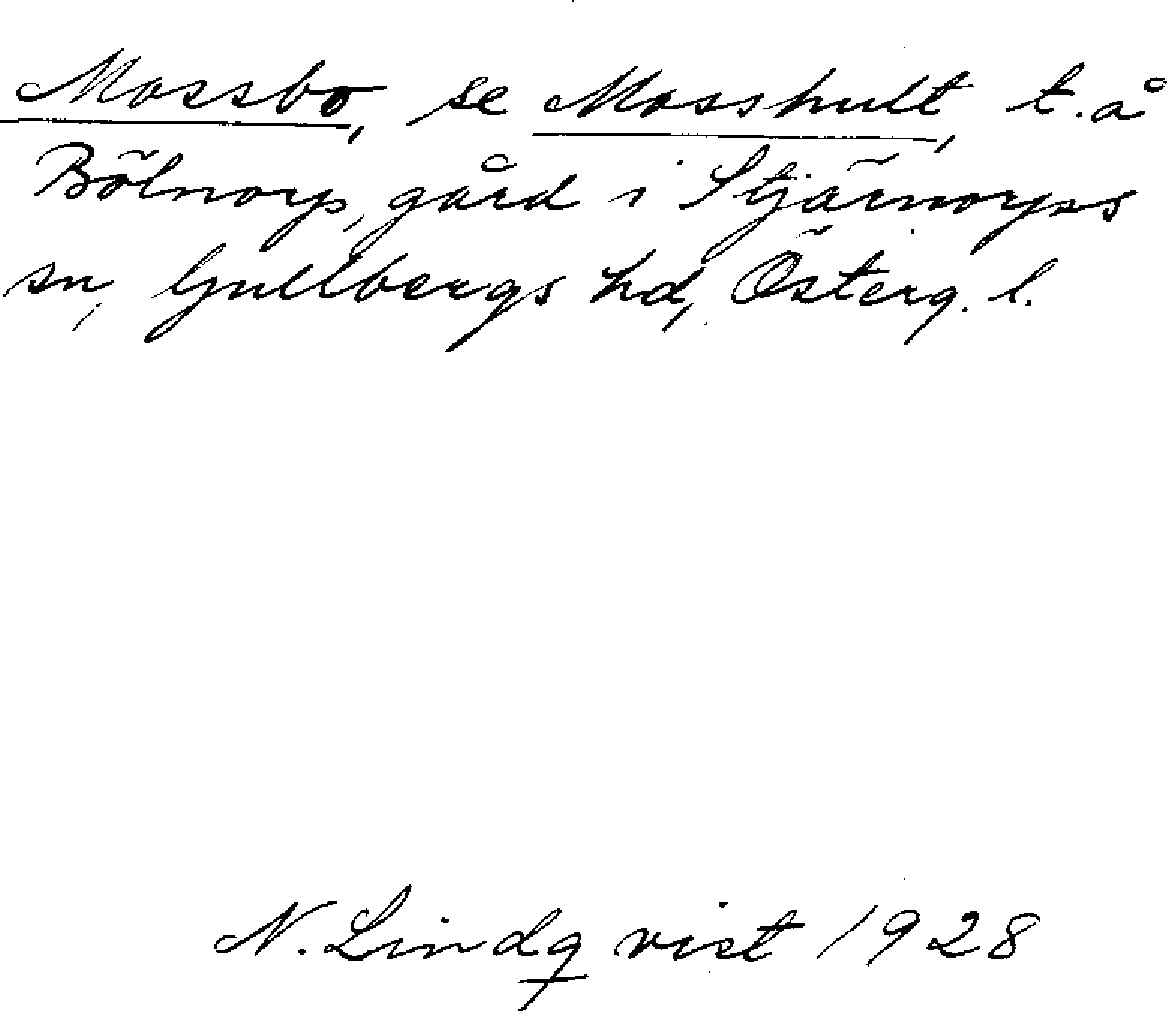 Mossbo, se Mosshult, t. å
Bölnorp, gård i Stjärnorps
sn, Gullbergs hd, Österg. l.
N. Lindqvist 1928